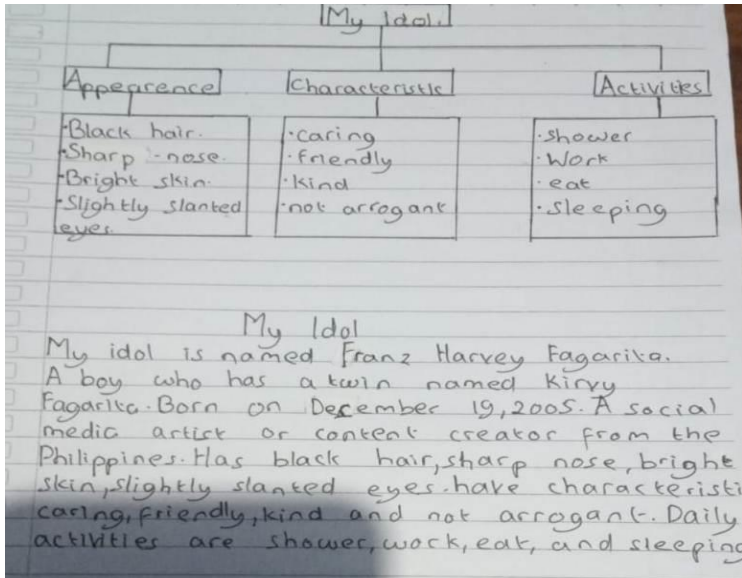 My Idol.
Appearence
Characteristic
Activities
·Black hair.
·Sharp -nose.
·Bright skin.
·Slightly slanted
eyes.
·caring
·friendly
·kind
·not arrogant
·shower
·Work
·eat
·Sleeping
My Idol
My idol is named Franz Harvey Fagarita.
A boy who has a twin named Kirvy
Fagarita. Born on December 19, 2005. A social
media artist or content creator from the
Philippines. Has black hair, sharp nose, bright
skin, slightly slanted eyes. have characteristi
caring, friendly, kind and not arrogant. Daily
activities are shower, work, eat, and sleeping